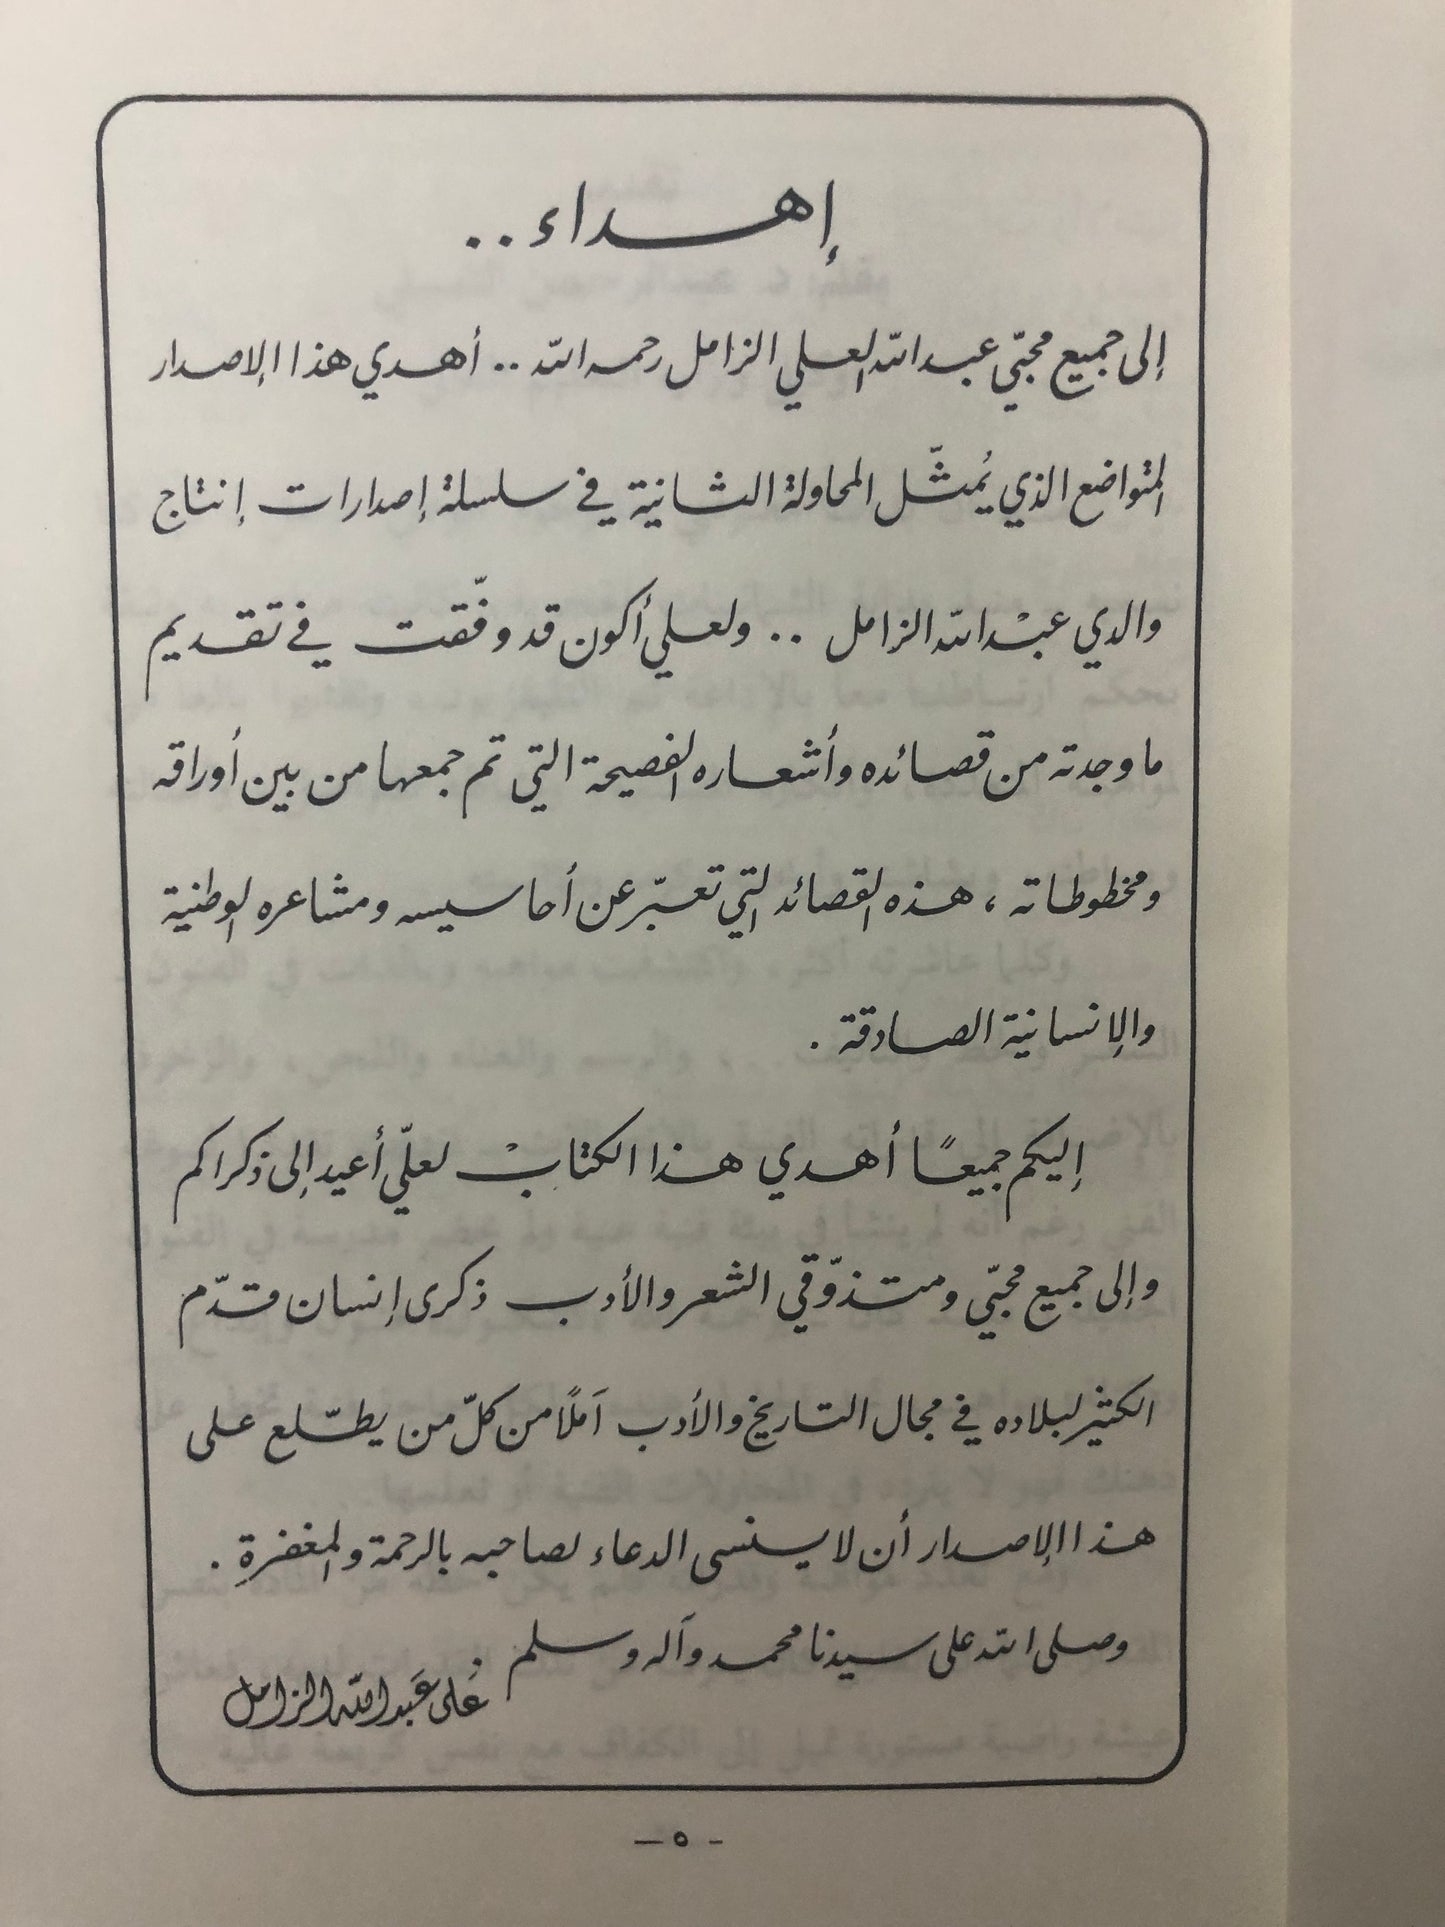 إهداء ..
إلى جميع محبّي عبدالله العلي الزامل رحمه الله .. أهدي هذا الإصدار
المتواضع الذي يُمثّل المحاولة الثانية في سلسلة إصدارات إنتاج
والدي عبدالله الزامل .. ولعلي أكون قد وفّقت في تقديم
ما وجدته من قصائده وأشعاره الفصيحة التي تم جمعها من بين أوراقه
ومخطوطاته ، هذه القصائد التي تعبّر عن أحاسيسه ومشاعره الوطنية
والإنسانية الصادقة .
إليكم جميعًا أهدي هذا الكتاب لعلّي أعيد إلى ذكراكم
وإلى جميع محبّي ومتذوّقي الشعر والأدب ذكرى إنسان قدّم
الكثير لبلاده في مجال التاريخ والأدب آملًا من كلّ من يطّلع على
هذا الإصدار أن لا ينسى الدعاء لصاحبه بالرحمة والمغفرة .
وصلى الله على سيدنا محمد وآله وسلم
علي عبدالله الزامل
- ٥ -